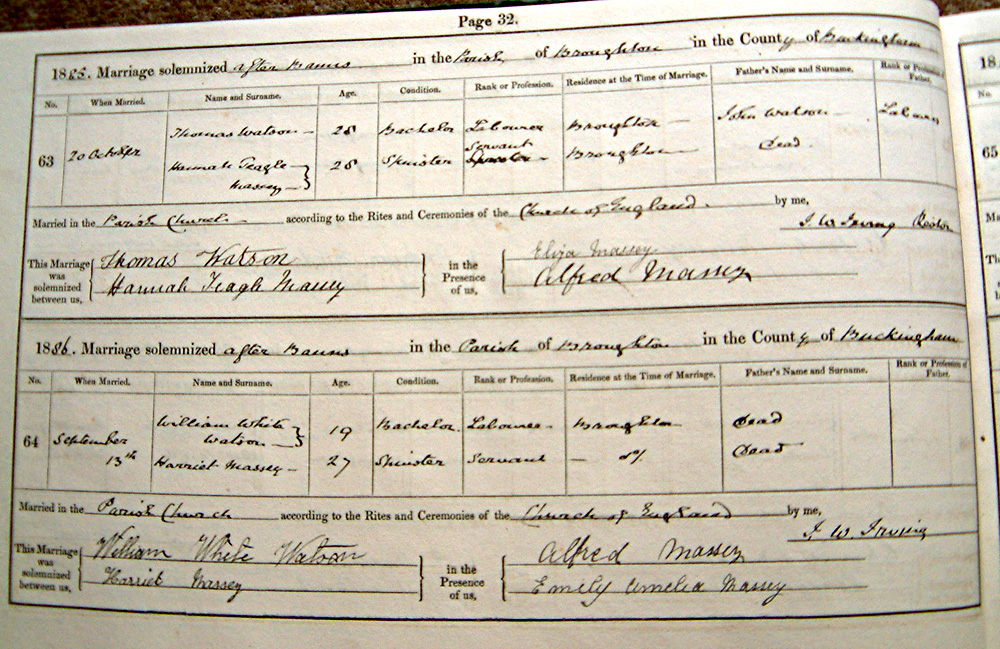 Page 32.
1885. Marriage solemnized after Banns in the Parish of Broughton in the County of Buckingham
No. When Married. Name and Surname. Age. Condition. Rank or Profession. Residence at the Time of Marriage. Father's Name and Surname. Rank or Profession of Father.
63 20 October Thomas Watson 28 Bachelor Labourer Broughton John Watson Labourer
Hannah Teagle Massey 28 Spinster Servant Broughton Dead.
Married in the Parish Church according to the Rites and Ceremonies of the Church of England. by me,
I. W. Irving Rector
This Marriage was solemnized between us, Thomas Watson in the Presence of us, Eliza Massey
Hannah Teagle Massey Alfred Massey
1886. Marriage solemnized after Banns in the Parish of Broughton in the County of Buckingham
No. When Married. Name and Surname. Age. Condition. Rank or Profession. Residence at the Time of Marriage. Father's Name and Surname. Rank or Profession of Father.
64 September 13th William White Watson 19 Bachelor Labourer Broughton Dead
Harriet Massey 27 Spinster Servant — do Dead
Married in the Parish Church according to the Rites and Ceremonies of the Church of England by me,
I. W. Irving
This Marriage was solemnized between us, William White Watson in the Presence of us, Alfred Massey
Harriet Massey Emily Amelia Massey
18
No.
65
Married